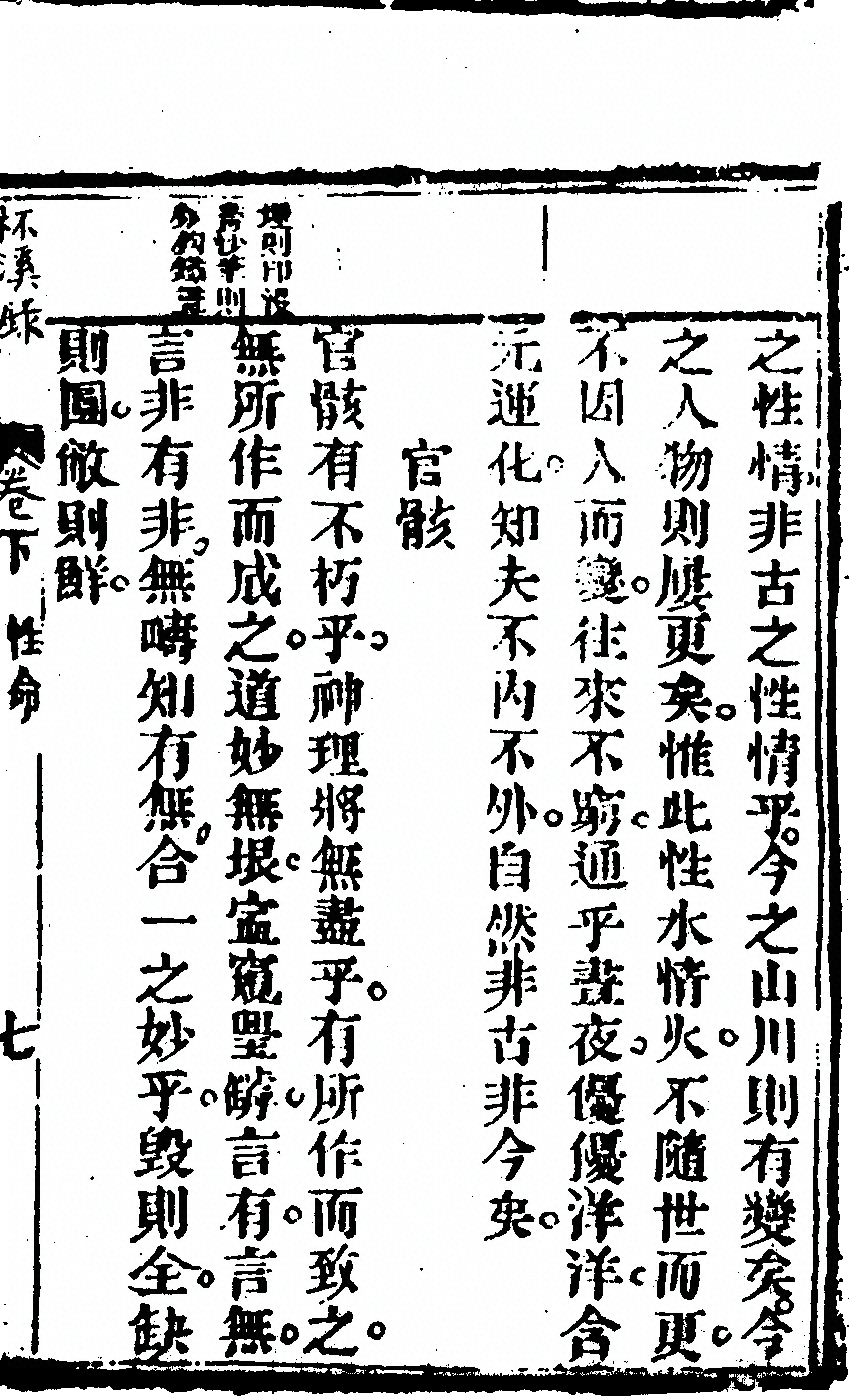 之性情非古之性情乎。今之山川則有變矣。今
之人物則屢更矣。惟此性水情火。不隨世而更。
不因人而變。往來不窮。通乎晝夜。優優洋洋。含
元運化。知夫不內不外。自然非古非今矣。
官骸
官骸有不朽乎。神理將無盡乎。有所作而致之。
無所作而成之。道妙無垠。窺罅言有。言無。
言非有非。無疇知有無。合一之妙乎。毀則全。缺
則圓。敝則鮮。
則印沒
言妙筆則
杯溪錄
卷下 性命
七